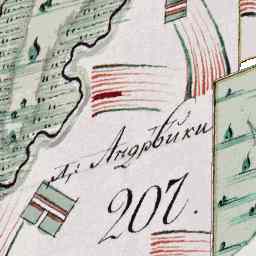 Д: Андрѣйки
207.